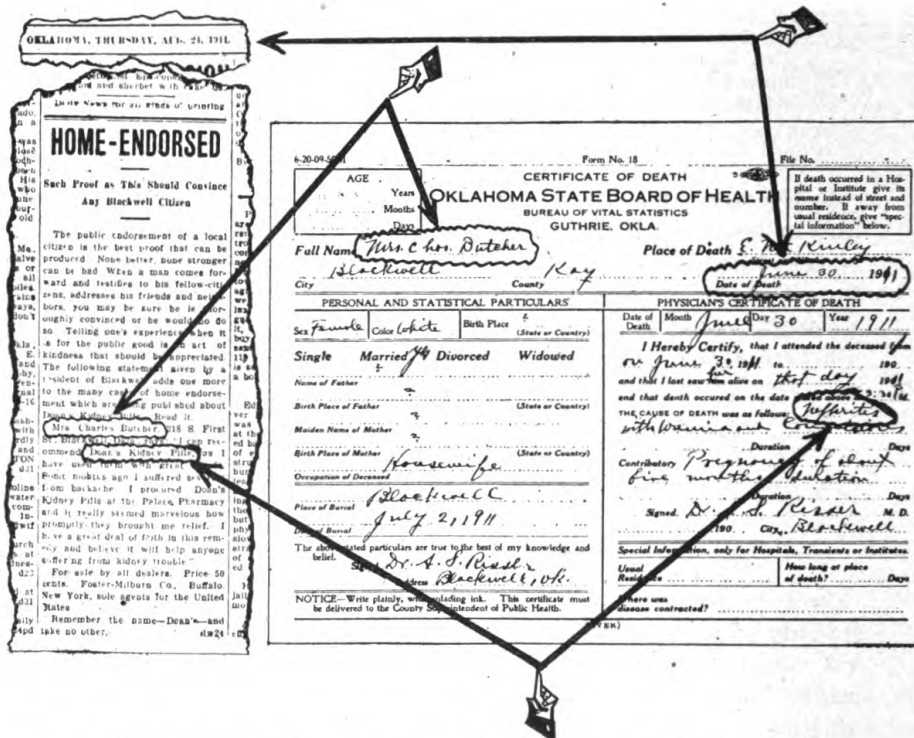 OKLAHOMA, THURSDAY, AUG. 24, 1911.
and sherbet with cake
Daily News for all kinds of printing
HOME-ENDORSED
Such Proof as This Should Convince
Any Blackwell Citizen
The public endorsement of a local
citizen is the best proof that can be
produced None better, none stronger
can be had When a man comes for-
ward and testifies to his fellow-citi-
zens, addresses his friends and neigh-
bors, you may be sure he is thor-
oughly convinced or he would not do
so Telling one's experience when it
is for the public good is an act of
kindness that should be appreciated
The following statement given by a
resident of Blackwell adds one more
to the many cases of home endorse-
ment which are being published about
Doan's Kidney Pills. Read it.
Mrs Charles Butcher, 218 S. First
St., Blackwell, Okla., says: "I can rec-
ommend Doan's Kidney Pills, as I
have used them with great
Some months ago I suffered
from backache I procured Doan's
Kidney Pills at the Palace Pharmacy
and it really seemed marvelous how
promptly they brought me relief. I
have a great deal of faith in this rem-
edy and believe it will help anyone
suffering from kidney trouble"
For sale by all dealers. Price 50
cents. Foster-Milburn Co., Buffalo,
New York, sole agents for the United
States
Remember the name—Doan's—and
take no other. d&w24
6-20-09- Form No. 18 File No.
AGE
Years
Months
Days
CERTIFICATE OF DEATH
OKLAHOMA STATE BOARD OF HEALTH
BUREAU OF VITAL STATISTICS
GUTHRIE, OKLA.
If death occurred in a Hos-
pital or Institute give its
name instead of street and
number. If away from
usual residence, give "spec-
ial information" below.
Full Name Mrs. Chas. Butcher Place of Death E. McKinley
Blackwell Kay June 30 1911
City County Date of Death
PERSONAL AND STATISTICAL PARTICULARS
Sex Female Color White Birth Place (State or Country)
Single Married Yes Divorced Widowed
Name of Father
?
Birth Place of Father (State or Country)
?
Maiden Name of Mother
?
Birth Place of Mother (State or Country)
Housewife
Occupation of Deceased
Place of Burial Blackwell
Date of Burial July 2, 1911
The above stated particulars are true to the best of my knowledge and
belief.
Signed Dr. A. S. Risser
Address Blackwell, Ok.
NOTICE—Write plainly, with unfading ink. This certificate must
be delivered to the County Superintendent of Public Health.
(OVER)
PHYSICIAN'S CERTIFICATE OF DEATH
Date of Death Month June Day 30 Year 1911
I Hereby Certify, that I attended the deceased from
on June 30 1911 to 190
and that I last saw her alive on that day 1911
and that death occurred on the date stated above M.
THE CAUSE OF DEATH was as follows: Nephritis
with Uremia and Convulsions
Duration Days
Contributory Pregnancy of about
five months duration
Duration Days
Signed Dr. A. S. Risser M. D.
190 City Blackwell
Special Information, only for Hospitals, Transients or Institutes.
Usual
Residence
How long at place
of death? Days
Where was
disease contracted?